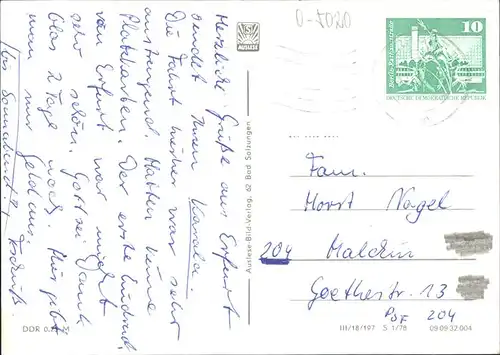 Herzliche Grüße aus Erfurt
sendet Ihnen
Die Fahrt hierher war sehr
anstrengend. Hatten keine
Platzkarten. Der erste Eindruck
von Erfurt war nicht
sehr schön. Gott sei Dank
bloß 2 Tage noch. Mir geht
mein Geld aus.
(bis Sonnabend!)
Tschüß
DDR 0,20 M
Auslese-Bild-Verlag, 62 Bad Salzungen
0-5020
10
DEUTSCHE DEMOKRATISCHE REPUBLIK
Fam.
Horst Nagel
204 Malchin
Goethestr. 13
PSF 204
III/18/197 S 1/78 09 09 32 004